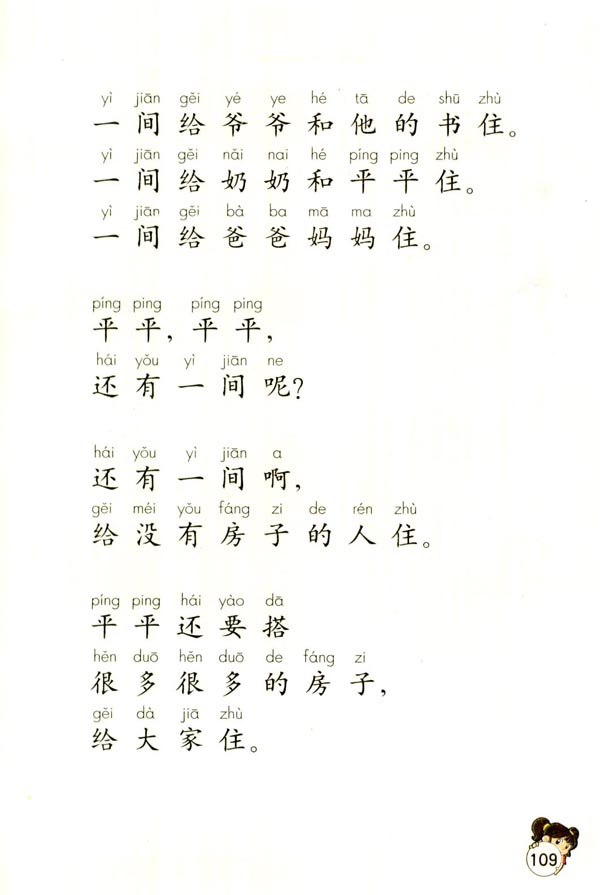 yì jiān gěi yé ye hé tā de shū zhù
一间给爷爷和他的书住。
yì jiān gěi nǎi nai hé píng ping zhù
一间给奶奶和平平住。
yì jiān gěi bà ba mā ma zhù
一间给爸爸妈妈住。
píng ping píng ping
平平，平平，
hái yǒu yì jiān ne
还有一间呢？
hái yǒu yì jiān a
还有一间啊，
gěi méi yǒu fáng zi de rén zhù
给没有房子的人住。
píng ping hái yào dā
平平还要搭
hěn duō hěn duō de fáng zi
很多很多的房子，
gěi dà jiā zhù
给大家住。
109